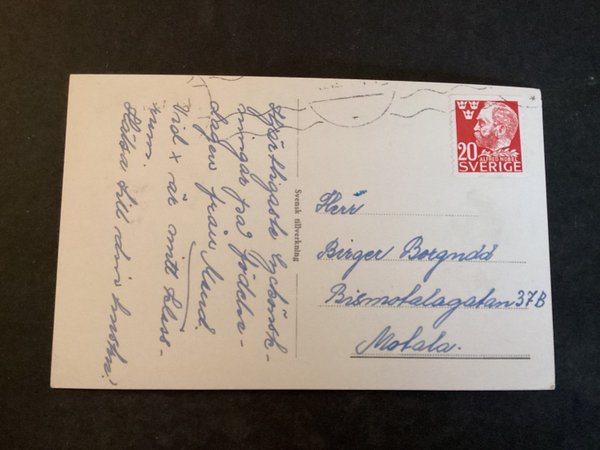 Hjärtligaste lyckönsk-
ningar på födelse-
dagen från Maud.
Vid x är mitt klass-
rum.
Hälsa till dina
Svensk tillverkning
20
ALFRED NOBEL
SVERIGE
Herr
Birger Borgndd
Bismotalagatan 37B
Motala.